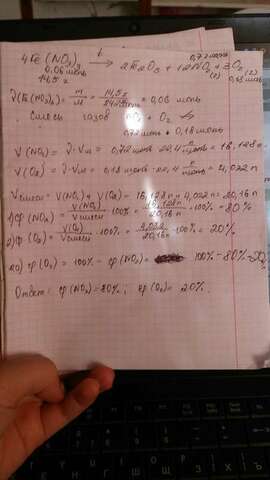 4Fe(NO₃)₃ t→ 2Fe₂O₃ + 12NO₂ + 3O₂
0,06 моль 0,72 моль (г) 0,18 моль (г)
14,5 г
ν(Fe(NO₃)₃) = m/M = 14,5 г = 0,06 моль
Смесь газов NO₂ + O₂
0,72 моль 0,18 моль
V(NO₂) = ν · Vм = 0,72 моль · 22,4 л/моль = 16,128 л
V(O₂) = ν · Vм = 0,18 моль · 22,4 л/моль = 4,032 л
Vсмеси = V(NO₂) + V(O₂) = 16,128 л + 4,032 л = 20,16 л
1) φ(NO₂) = V(NO₂)/Vсмеси · 100% = 16,128 л/20,16 л · 100% = 80%
2) φ(O₂) = V(O₂)/Vсмеси · 100% = 4,032/20,16 л · 100% = 20%
φ(O₂) = 100% - φ(NO₂) = 100% - 80% = 20%
Ответ: φ(NO₂) = 80%, φ(O₂) = 20%.